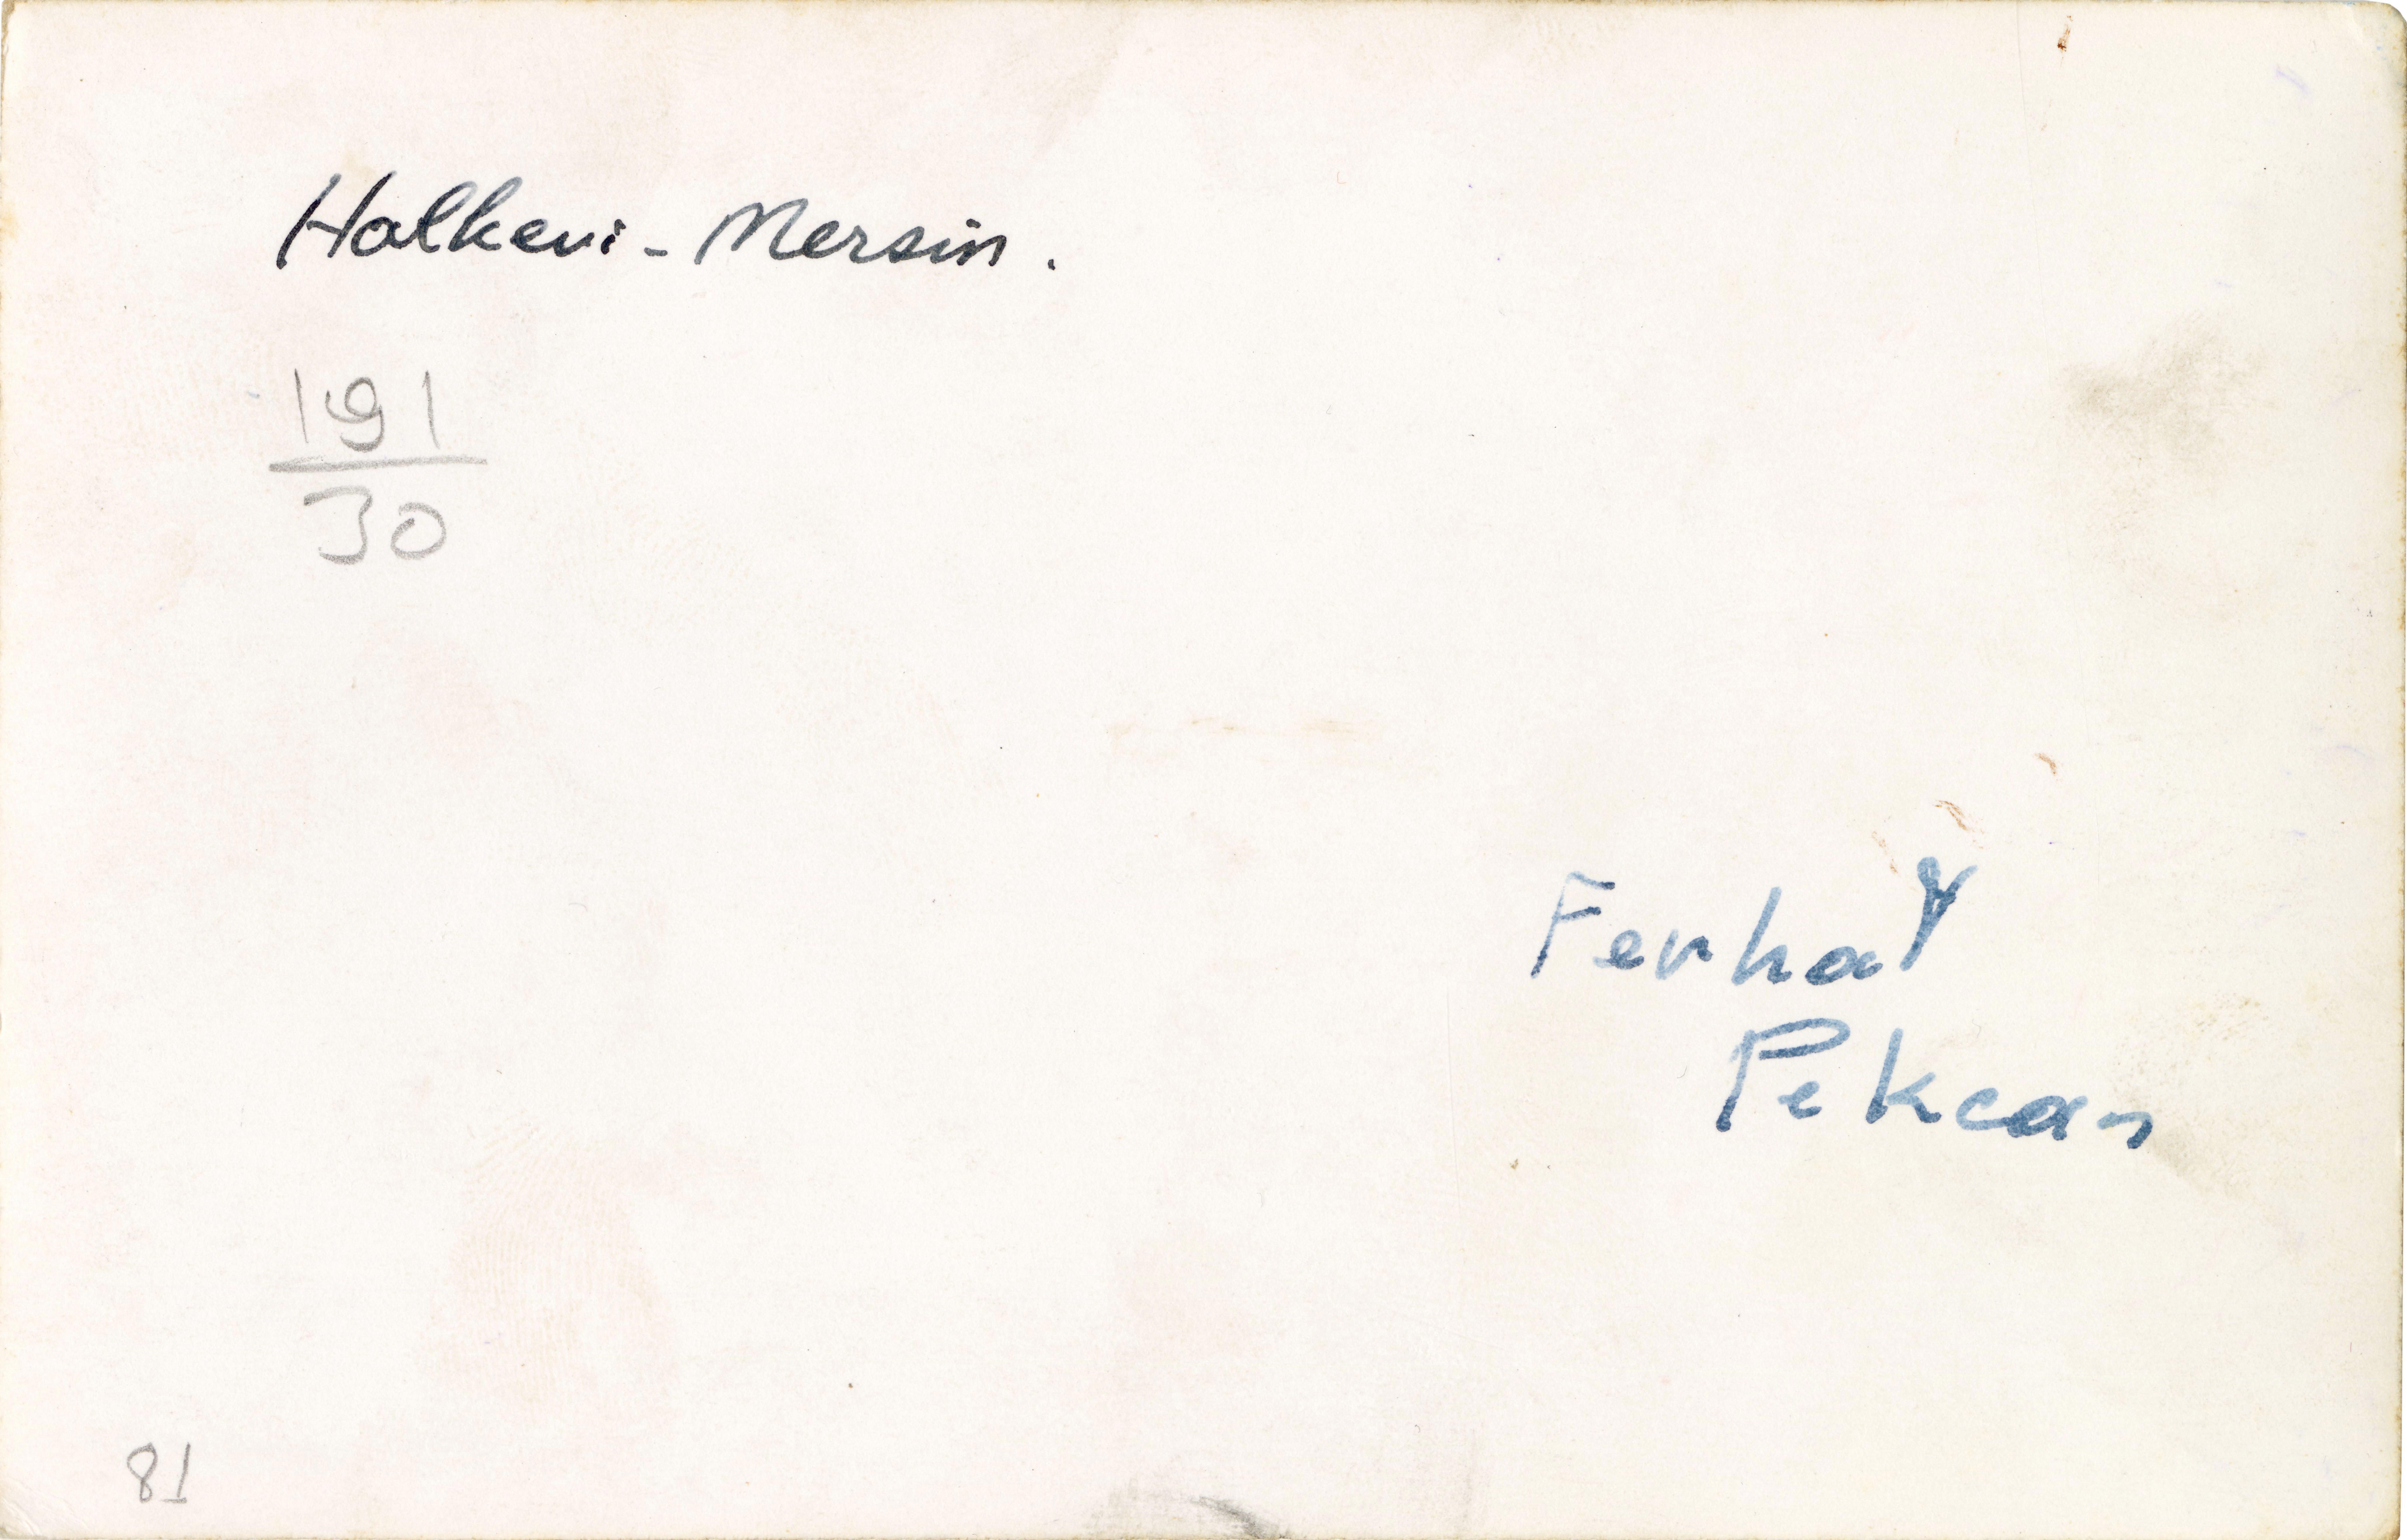 Halkevi - Mersin.
191
30
Ferhat
Pekcan
81